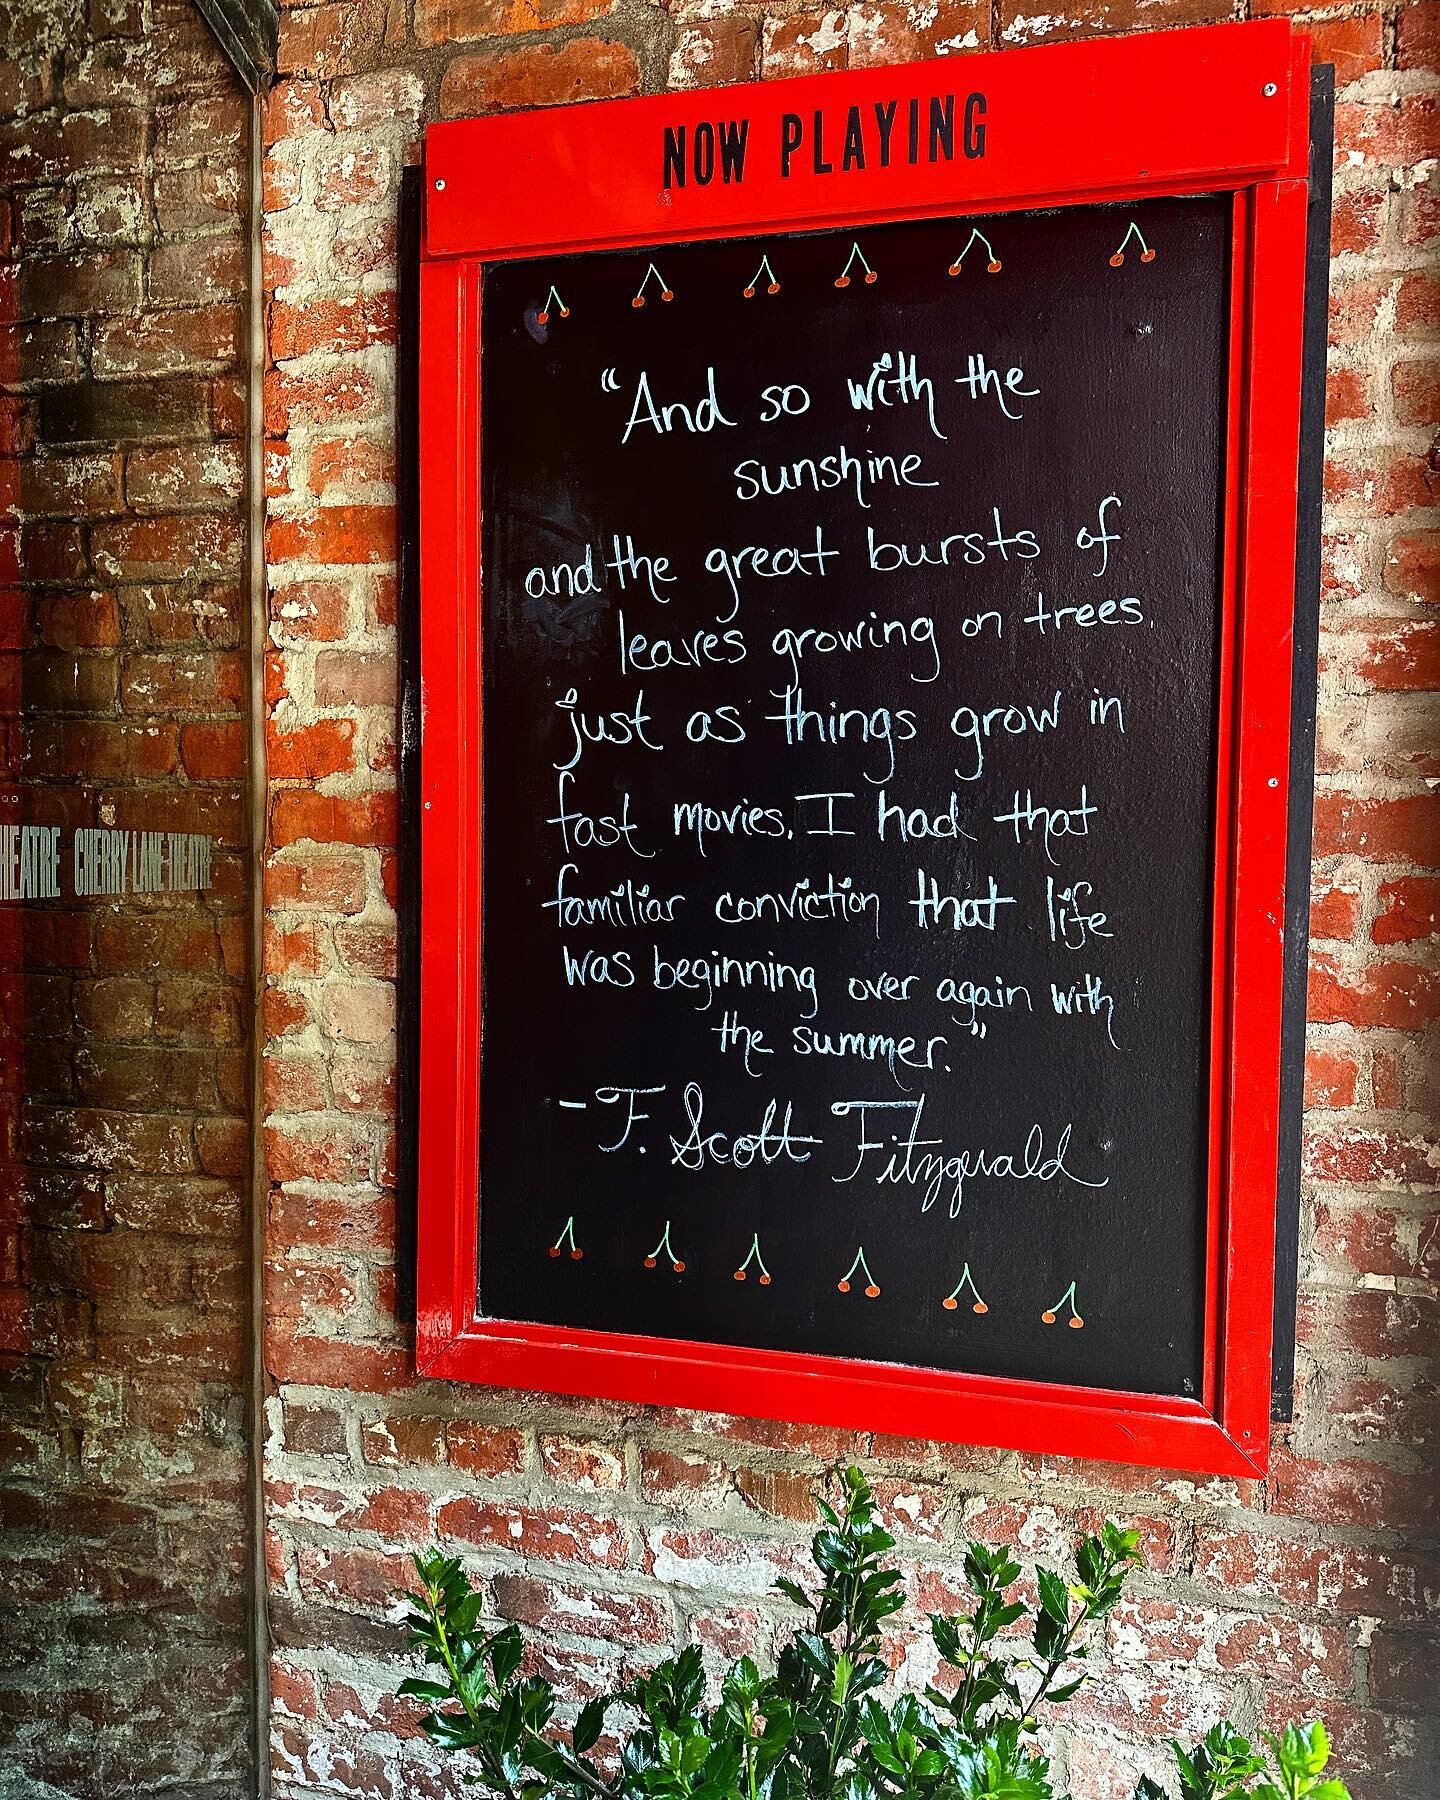 NOW PLAYING
"And so with the
sunshine
and the great bursts of
leaves growing on trees,
just as things grow in
fast movies, I had that
familiar conviction that life
was beginning over again with
the summer."
- F. Scott Fitzgerald
HEATRE CHERRY LANE THEATRE